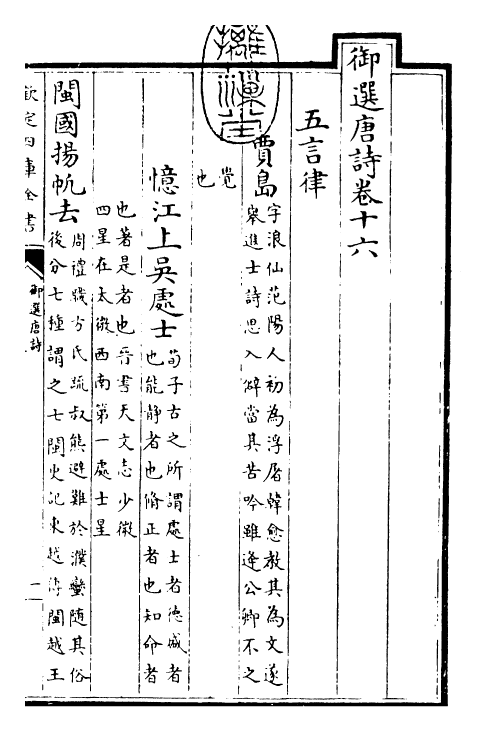 御選唐詩卷十六
五言律
賈島
字浪仙范陽人初為浮屠韓愈教其為文遂
舉進士詩思入僻當其苦吟雖逢公卿不之
覺
也
憶江上吳處士
荀子古之所謂處士者德盛者
也能靜者也脩正者也知命者
也著是者也晉書天文志少微
四星在太微西南第一處士星
閩國揚帆去
周禮職方氏疏叔熊避難於濮蠻隨其俗
後分七種謂之七閩史記東越傳閩越王
欽定四庫全書
御選唐詩
一